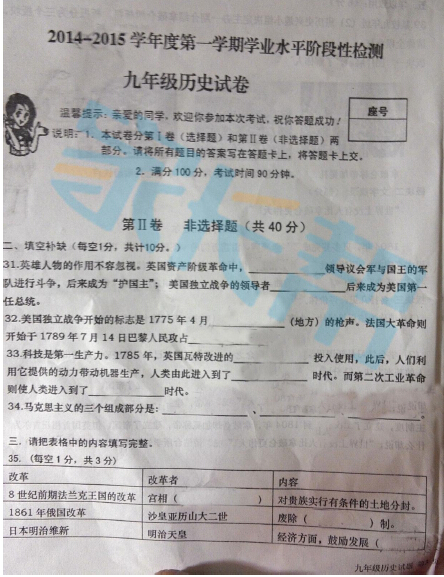 2014-2015 学年度第一学期学业水平阶段性检测
九年级历史试卷
温馨提示：亲爱的同学，欢迎你参加本次考试，祝你答题成功！
座号
说明：1. 本试卷分第Ⅰ卷（选择题）和第Ⅱ卷（非选择题）两
部分。请将所有题目的答案写在答题卡上，将答题卡上交。
2. 满分100分，考试时间90分钟。
第Ⅱ卷 非选择题（共40分）
二、填空补缺（每空1分，共计10分。）
31.英雄人物的作用不容忽视。英国资产阶级革命中，____________领导议会军与国王的军
队进行斗争，后来成为“护国主”； 美国独立战争的领导者____________后来成为美国第一
任总统。
32.美国独立战争开始的标志是 1775 年 4 月____________（地方）的枪声。法国大革命则
开始于 1789 年 7 月 14 日巴黎人民攻占____________
33.科技是第一生产力。1785 年，英国瓦特改进的____________ 投入使用，此后，人们利
用它提供的动力带动机器生产，人类由此进入到了____________ 时代。而第二次工业革命
则使人类进入到了____________时代。
34.马克思主义的三个组成部分是：____________、____________、____________。
三、请把表格中的内容填写完整。
35.（每空 1 分，共 3 分）
改革 改革者 内容
8 世纪前期法兰克王国的改革 宫相（ ） 对贵族实行有条件的土地分封。
1861 年俄国改革 沙皇亚历山大二世 废除（ ）制。
日本明治维新 明治天皇 经济方面，鼓励发展（
九年级历史试题
家长帮